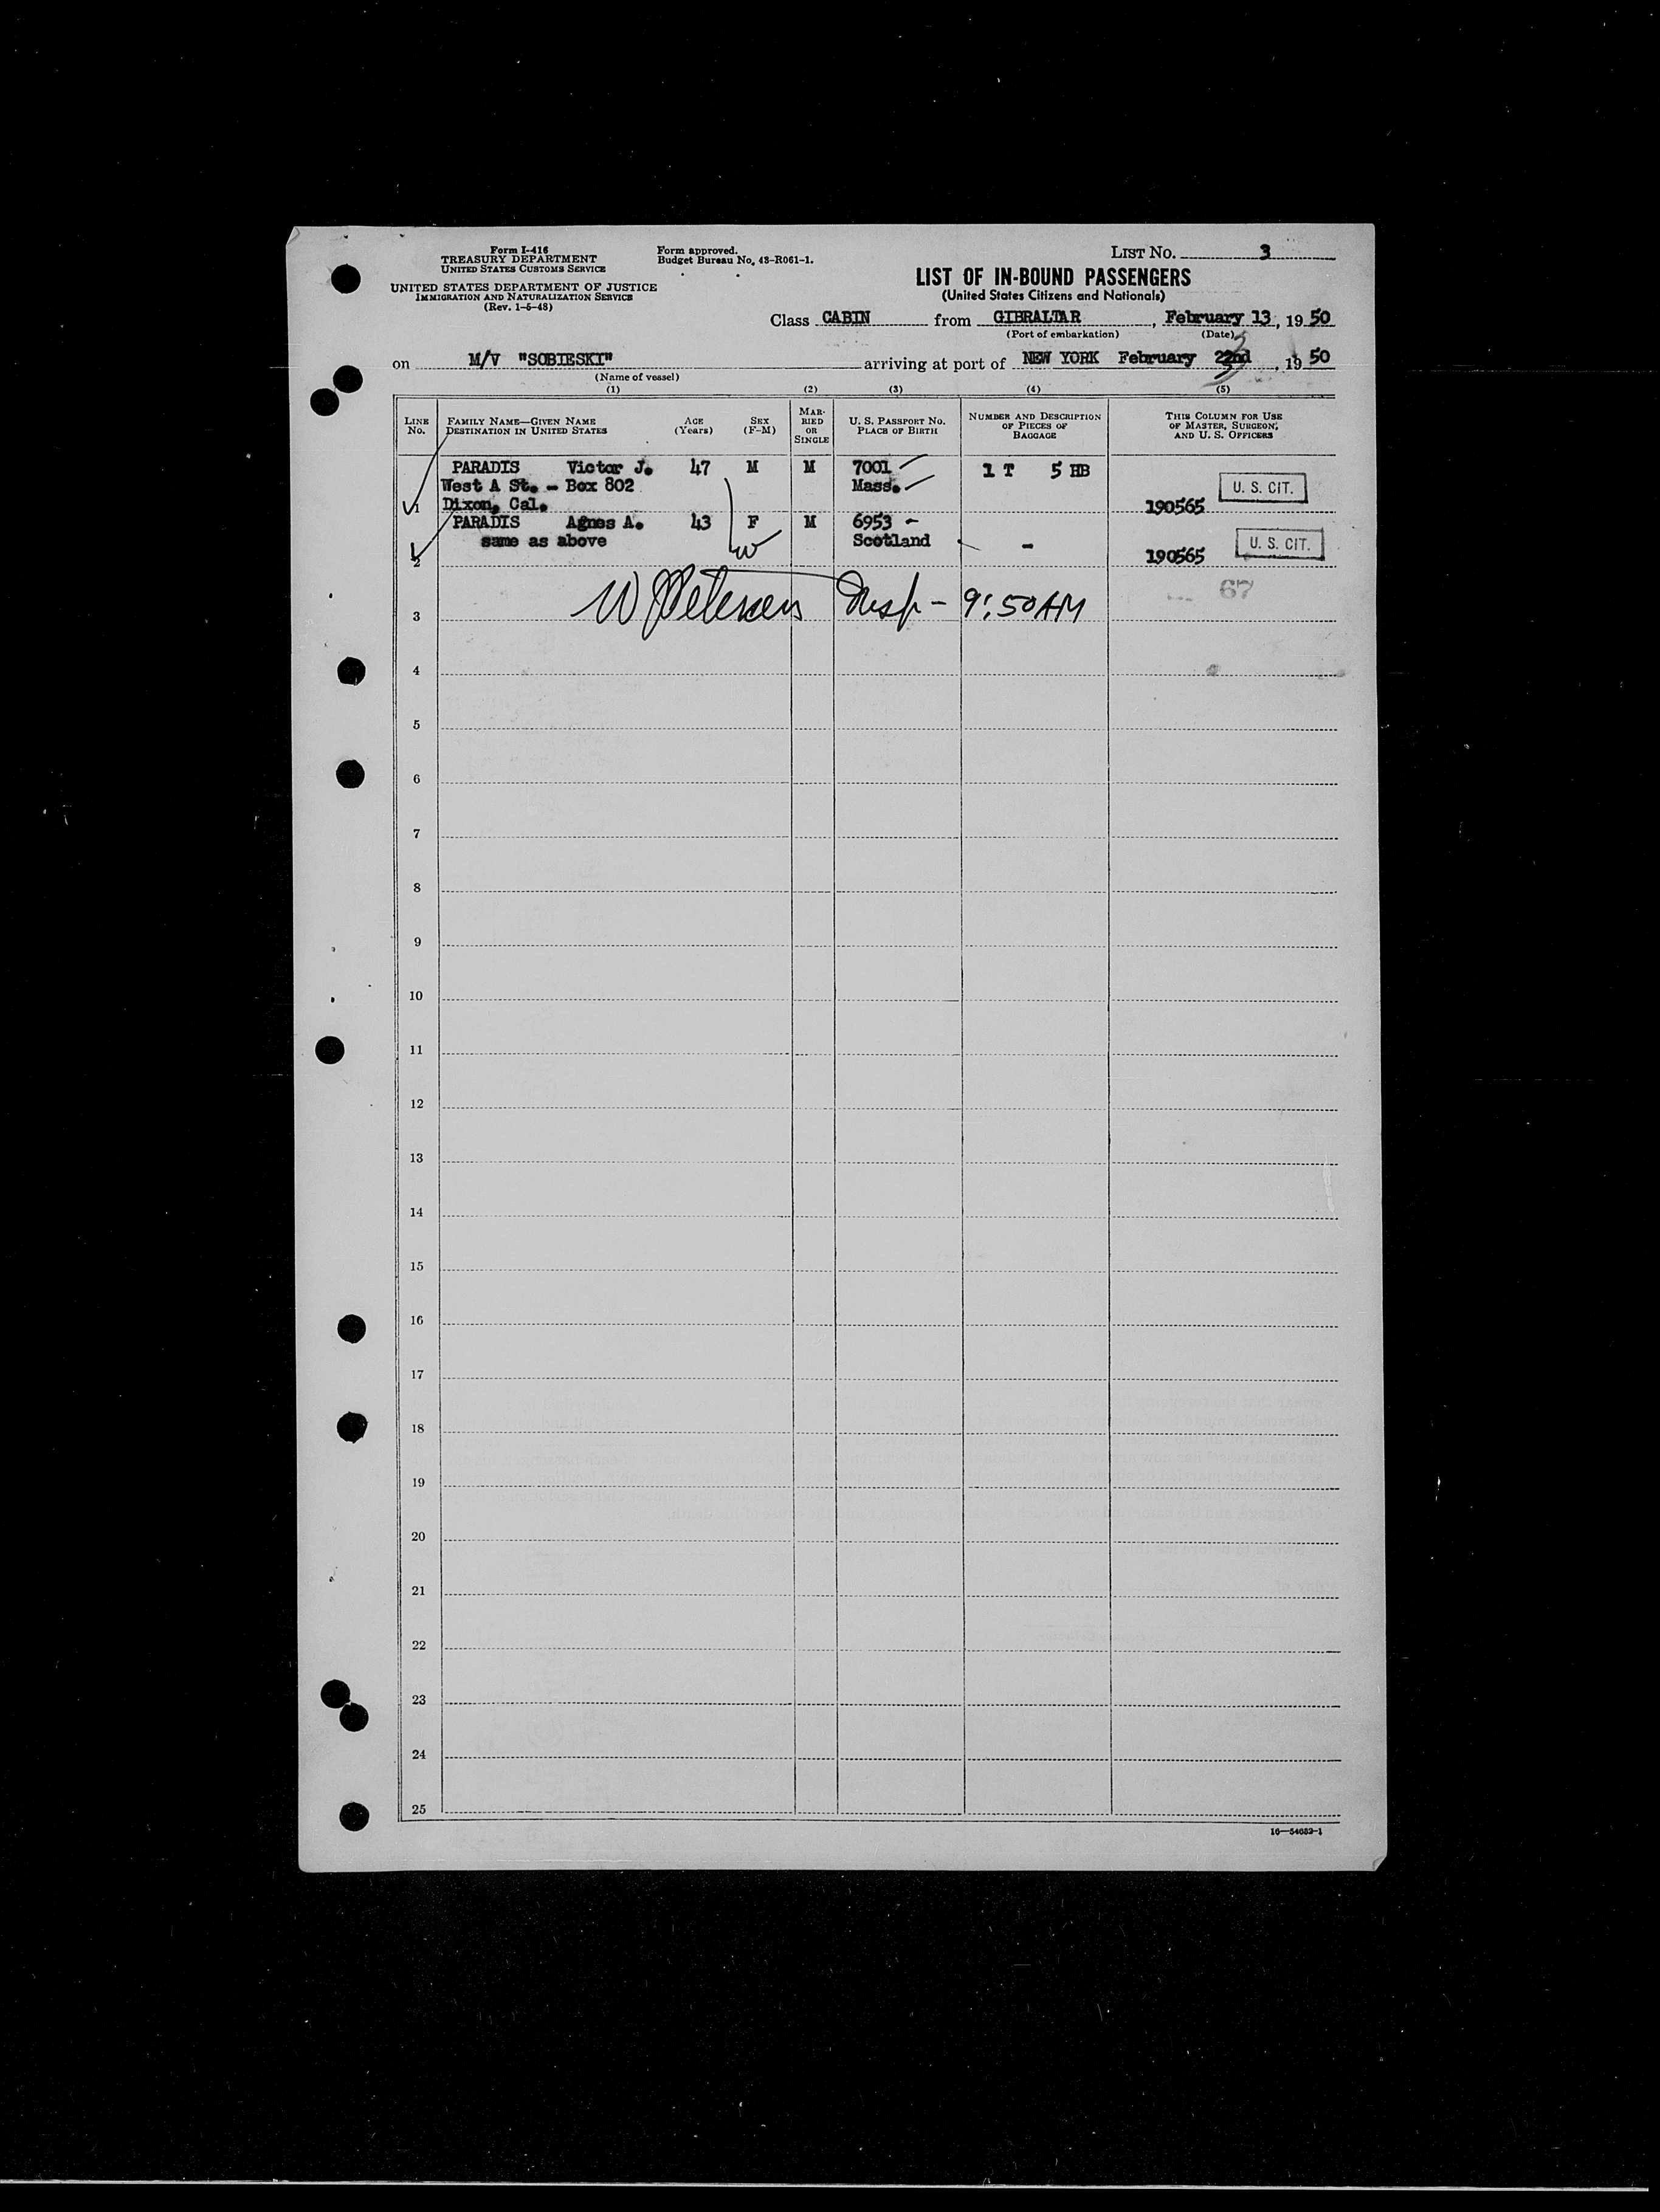 Form I-416
TREASURY DEPARTMENT
UNITED STATES CUSTOMS SERVICE
UNITED STATES DEPARTMENT OF JUSTICE
IMMIGRATION AND NATURALIZATION SERVICE
(Rev. 1-5-48)
Form approved.
Budget Bureau No. 43-R061-1.
LIST No. 3
LIST OF IN-BOUND PASSENGERS
(United States Citizens and Nationals)
Class CABIN from GIBRALTAR, February 13, 19 50
(Port of embarkation) (Date)
on M/V "SOBIESKI" arriving at port of NEW YORK February 22nd, 19 50
(Name of vessel)
(1) (2) (3) (4) (5)
LINE No. FAMILY NAME—GIVEN NAME DESTINATION IN UNITED STATES AGE (Years) SEX (F-M) MARRIED OR SINGLE U. S. PASSPORT No. PLACE OF BIRTH NUMBER AND DESCRIPTION OF PIECES OF BAGGAGE THIS COLUMN FOR USE OF MASTER, SURGEON, AND U. S. OFFICERS
PARADIS Victor J. 47 M M 7001 1 T 5 HB
West A St. - Box 802 Mass. U. S. CIT.
1 Dixon, Cal. 190565
PARADIS Agnes A. 43 F M 6953 -
same as above Scotland - U. S. CIT.
2 190565
W Petersen Insp - 9:50 AM 67
3
4
5
6
7
8
9
10
11
12
13
14
15
16
17
18
19
20
21
22
23
24
25